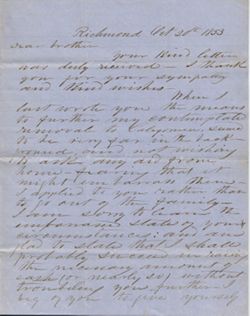 Richmond Oct 20th 1853
Dear brother
Your kind letter
was duly received - I thank
you for your sympathy
and kind wishes.
When I
last wrote you the means
to further my contemplated
removal to California seemed
to be very far in the back
ground and not wishing
to ask any aid from
home - fearing that it
might embarrass them
I applied to you rather than
to go out of the family -
I am sorry to learn the
embarrassed state of your
circumstances: and am
glad to state that I shall
probably succeed in raising
the necessary amount of
cash or nearly so, without
troubling you further - I
beg of you to give yourself